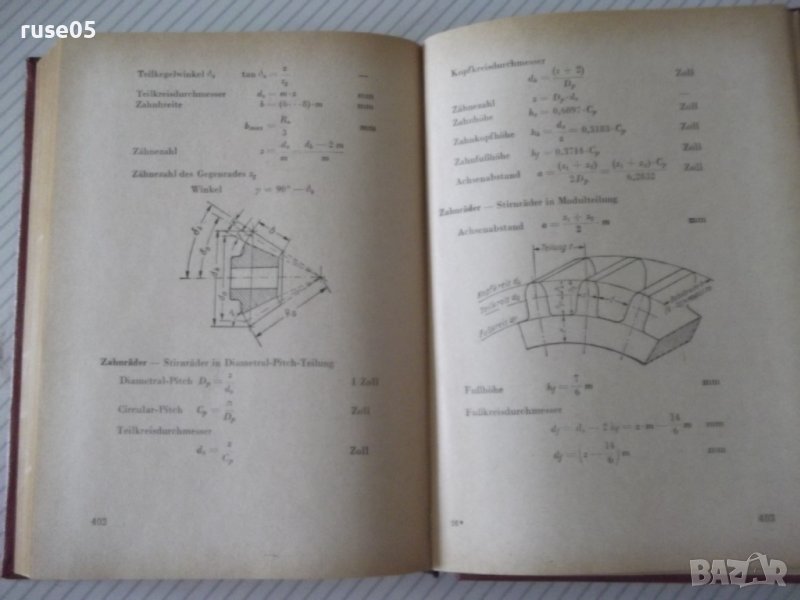 ruse05
Teilkegelwinkel δ₂ tan δ₂ = z/z₂ —
Teilkreisdurchmesser d₀ = m·z mm
Zahnbreite b = (6···8)·m mm
b max = Rₐ/3 mm
Zähnezahl z = d₀/m = (dₖ − 2 m)/m
Zähnezahl des Gegenrades z₂
Winkel γ = 90° — δ₂
Zahnräder — Stirnräder in Diametral-Pitch-Teilung
Diametral-Pitch Dₚ = z/d₀ 1 Zoll
Circular-Pitch Cₚ = π/Dₚ Zoll
Teilkreisdurchmesser
d₀ = z/Cₚ Zoll
402
Kopfkreisdurchmesser
dₖ = (z + 2)/Dₚ Zoll
Zähnezahl z = Dₚ·d₀ —
Zahnhöhe Zoll
Zahnkopfhöhe = 0,3183·Cₚ Zoll
Zahnfußhöhe Zoll
Achsenabstand a = (z₁ + z₂)/2Dₚ = (z₁ + z₂)·Cₚ/6,2832 Zoll
Zahnräder — Stirnräder in Modulteilung
Achsenabstand a = (z₁ + z₂)/2 m mm
Teilung t
Kopfkreis dₖ
Teilkreis d₀
Fußkreis d_f
Fußhöhe h_f = 7/6 m mm
Fußkreisdurchmesser
d_f = d₀ — 2 h_f = z·m — 14/6 m mm
d_f = (z — 14/6) m mm
26*
403
BAZAR